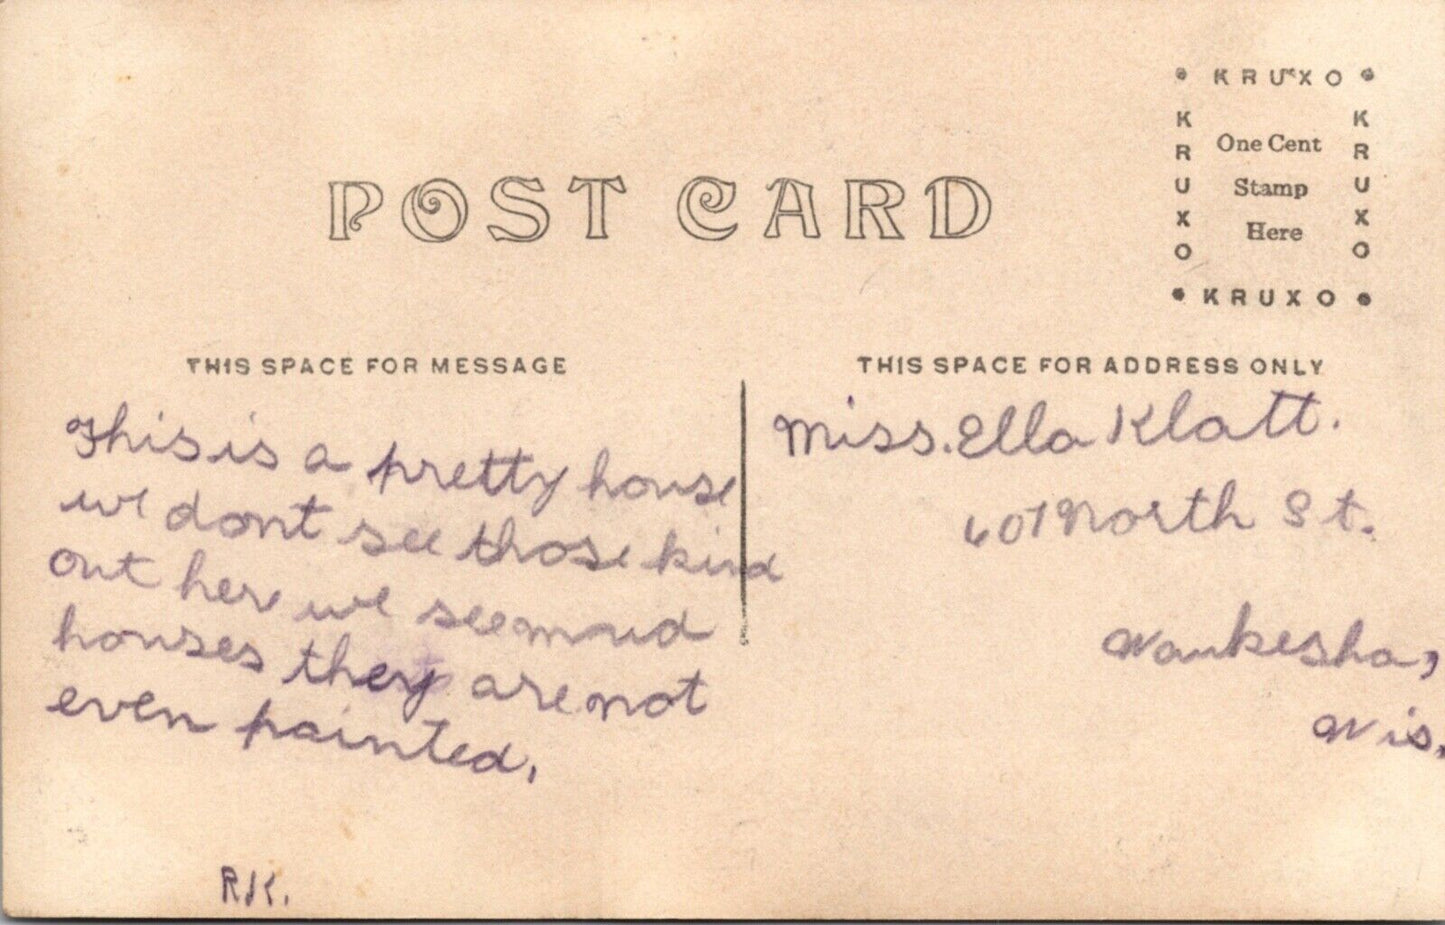 • KRUXO •
KRUXO
One Cent
Stamp
Here
KRUXO
• KRUXO •
POST CARD
THIS SPACE FOR MESSAGE
This is a pretty house
we dont see those kind
out here we see mud
houses they are not
even painted.
R.K.
THIS SPACE FOR ADDRESS ONLY
Miss. Ella Klatt.
607 North St.
Waukesha,
Wis.